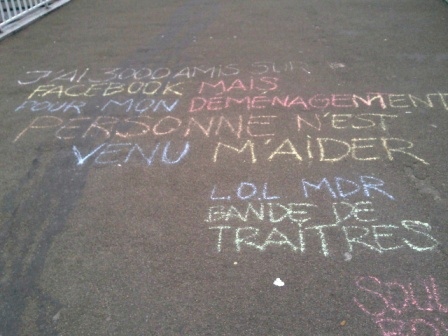 J'AI 3000 AMIS SUR
FACEBOOK MAIS
POUR MON DÉMENAGEMENT
PERSONNE N'EST
VENU M'AIDER
LOL MDR
BANDE DE
TRAITRES
SOUL